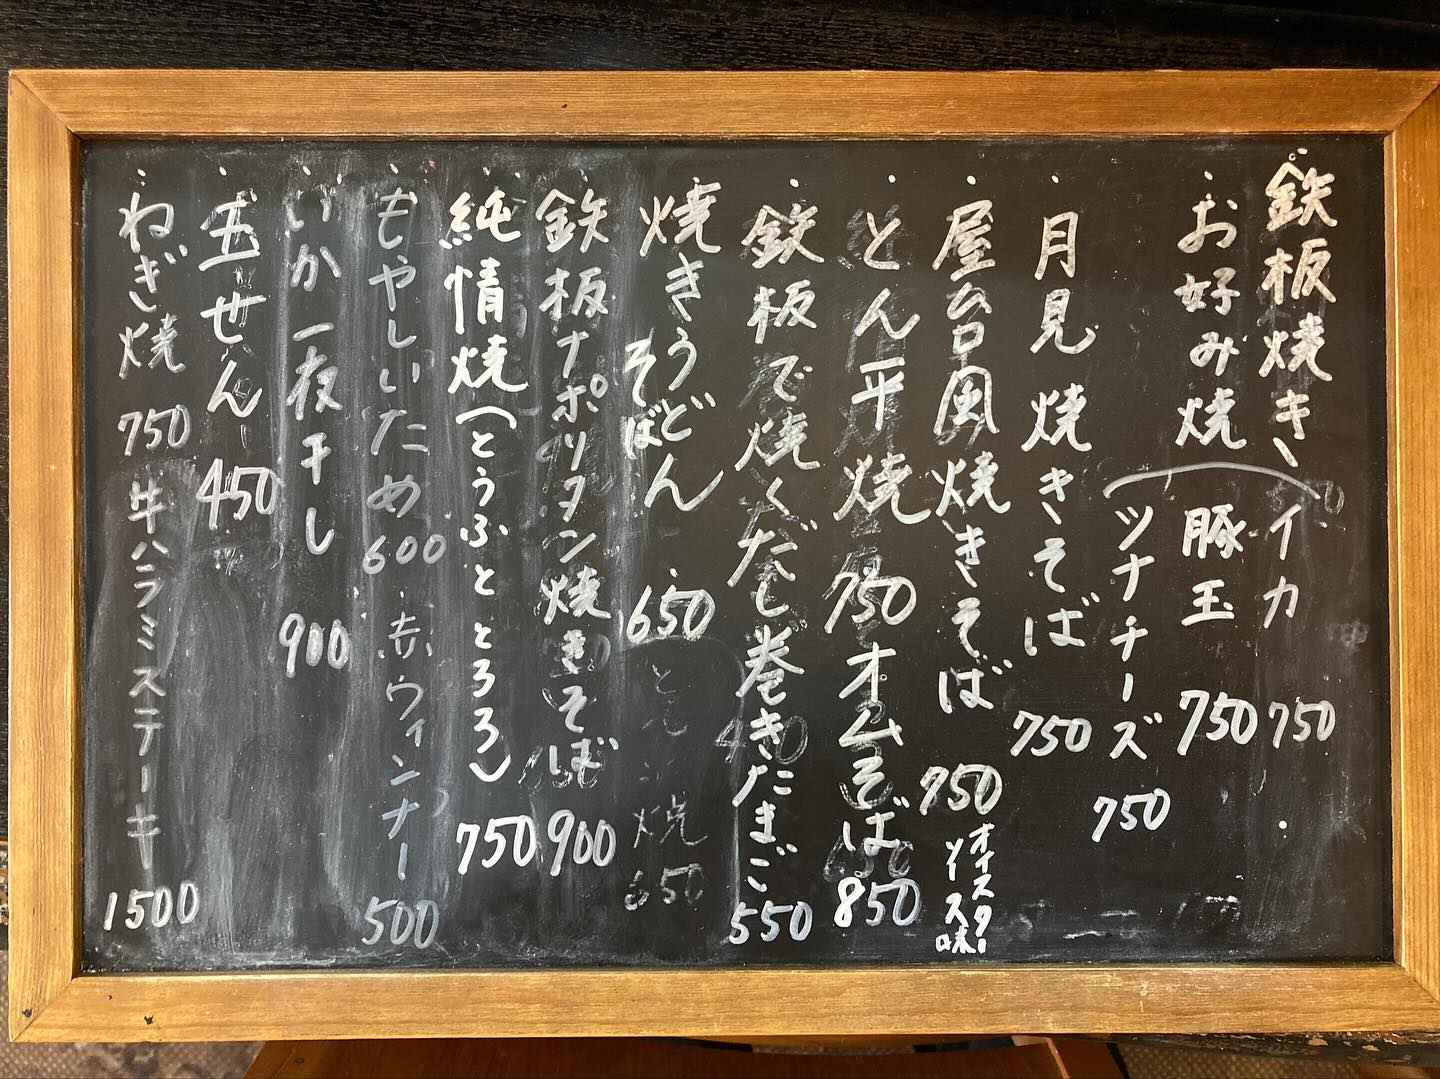 鉄板焼き、
・お好み焼(イカ 750
豚玉 750
ツナチーズ 750
・月見焼きそば 750
・屋台風焼きそば 750
オイスターソース味
・とん平焼 750
オムそば 850
・鉄板で焼くだし巻きたまご 550
・焼きうどん
そば 650
・鉄板ナポリタン焼きそば 900
・純情焼(とうふととろろ) 750
・もやしいため 600
・赤ウィンナー 500
・いか一夜干し 900
・玉せん 450
・ねぎ焼 750
牛ハラミステーキ 1500